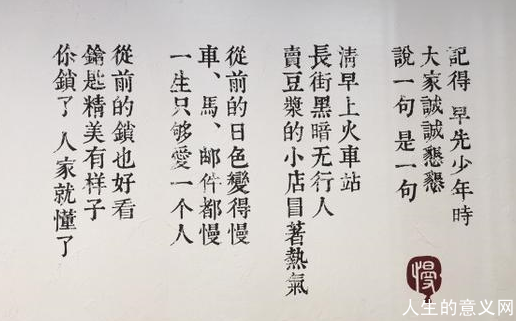 記得 早先少年時
大家誠誠懇懇
說一句 是一句
清早上火車站
長街黑暗无行人
賣豆漿的小店冒著熱氣
從前的日色變得慢
車、馬、邮件都慢
一生只够愛一个人
從前的鎖也好看
鑰匙精美有样子
你鎖了 人家就懂了
慢
人生的意义网